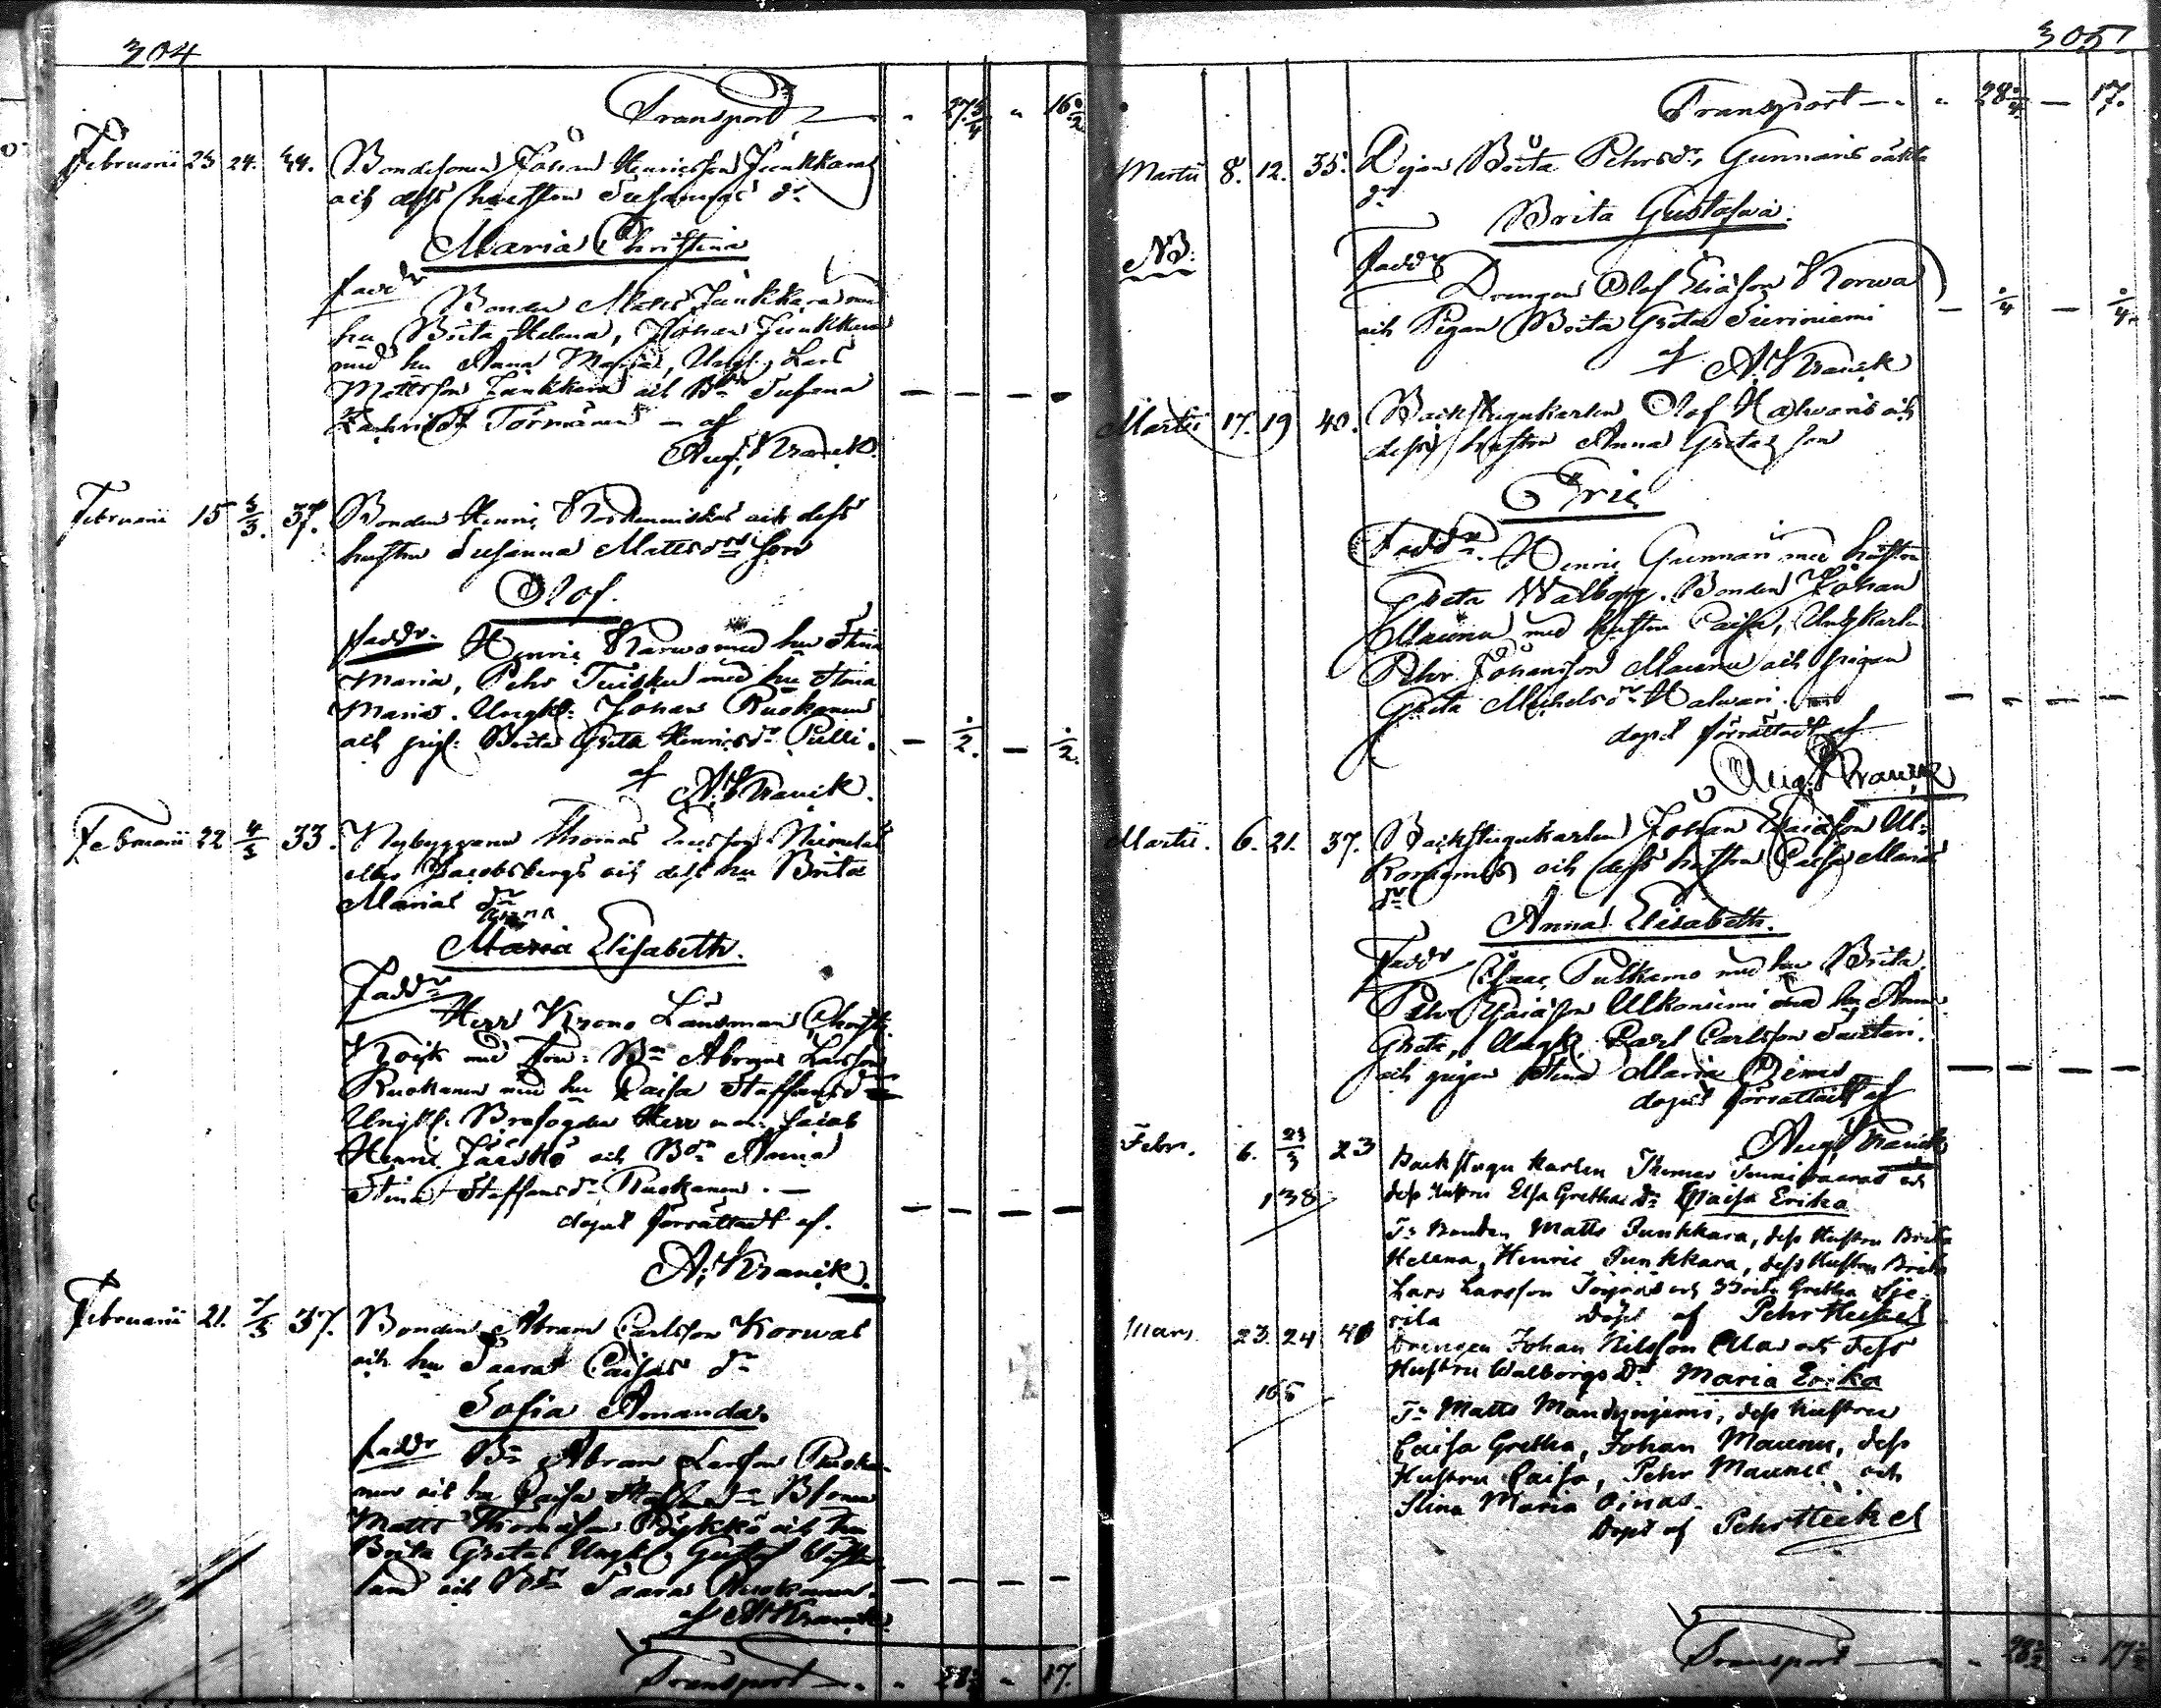 304
Transport 27 3/4 " 16 1/2
Februarii 23 24. 44. Bondesonen Johan Henricsson Junkkaras
och dess hustru Susannas dr
Maria Christina
faddr
Bonden Matts Junkkara med
hu Brita Helena, Johan Junkkara
med hu Anna Maria, Ungk. Lars
Mattsson Junkkara och Bdr Susanna
Törmänen — af
Aug. Kranck.
Februarii 15 3/3. 37. Bonden Henric och dess
hustru Susanna Mattsdrs son
Olof.
faddr. Henric Karwo med hu Stina
Maria, Pehr Tuisku med hu Stina
Maria. Ungk: Johan Ruokanen
och pig: Brita Greta Henricsdr Pulli. — 1/2. — 1/2.
af
A. Kranck.
Februarii 22 4/3 33. Nybyggaren Thomas Ericsson Niemelas
eller Jacobsbergs och dess hu Brita
Marias dr
Maria Elisabeth.
Faddr
Herr Krono Länsman
med fru: Bn Abram Larsson
Ruokanen med hu Caisa Staffansdr
Ungk: Herr Jacob
Henric och Bdr
Stina Staffansdr Ruokanen. —
döpt förrättadt af.
A. Kranck.
Februarii 21. 7/3 37. Bonden Abram Carlsson Korwas
och hu Saara Caisas dr
Sofia Amanda.
faddr Bn Abram Larsson Ruoka-
nen och hu Caisa Bsonen
Matts Thomasson och hu
Brita Greta Ungk. Gustaf
och Bdr Saara Ruokanen.
af A. Kranck.
Transport — " 28 1/4 " 17.
305
Transport — " 28 1/4 — 17.
Martii 8. 12. 35. Pigan Brita Pehrsdr Gunnaris oäkta
dr
Brita Gustafva.
NB.
Faddr
Drengen Olof Eliasson Korwa
och Pigan Brita Greta Suriniemi — 1/4 — 1/4.
af A. Kranck
Martii 17. 19 40. Backstugukarlen Olof Halvaris och
dess hustru Anna Gretas son
Eric
Faddr. Henric Gunnari med hustru
Greta Walborg. Bonden Johan
Maunu med hustru Caisa, Ungkarlen
Pehr Johansson Maunu och pigan
Greta Michelsdr Halvari.
döpt förrättadt af
Aug. Kranck
Martii. 6. 21. 37. Backstugukarlen Johan Esaiasson Ul-
koniemis och dess hustru Caisa Marias
dr
Anna Elisabeth.
Faddr Isaac med hu Brita.
Pehr Esaiasson Ulkoniemi med hu Anna
Greta, Ungk. Carl Carlsson
och pigan Stina Maria
döpet förrättadt af
Aug. Kranck
Febr. 6. 21/3 23 Backstugu karlen Thomas Tennivaaras och
138 dess Hustrus Elsa Grethas Dr Caisa Erika
F: Bonden Matts Junkkara, dess Hustru Brita
Helena, Henric Junkkara, dess Hustru Brita
Lars Larsson och Brita Gretha Sie-
rila Döpt af Pehr Heikel
Mars. 23. 24 40 Drengen Johan Nilsson Ollas och dess
Hustru Walborgs Dr Maria Erika
165
F: Matts Mandynjemi, dess Hustru
Caisa Gretha, Johan Maunu, dess
Hustru Caisa, Pehr Maunu och
Stina Maria Oinas.
Döpt af Pehr Heikel
Transport — " 28 1/2 " 17 1/4